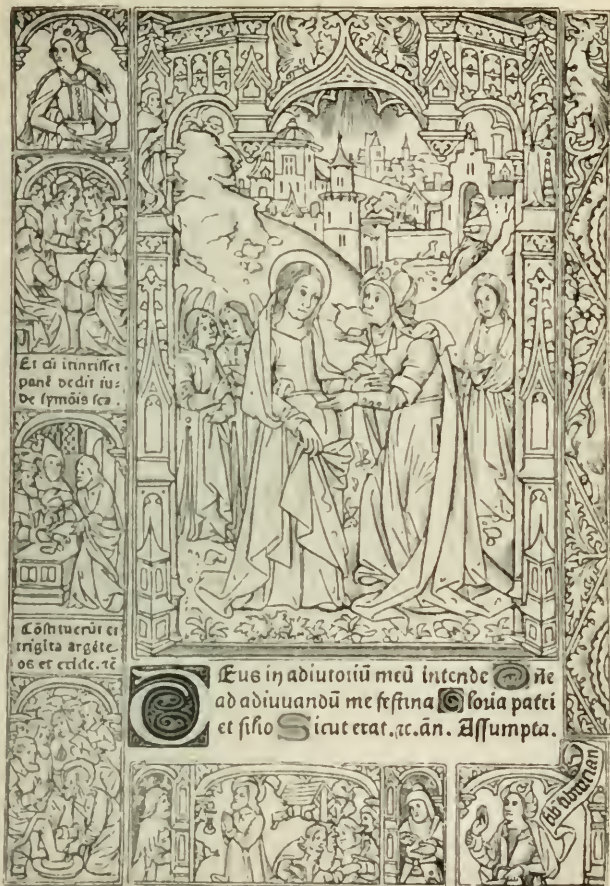 Et cū intinxisset
panē dedit iu⸗
de symōis sca.
Cōstituerūt ei
trigīta argēte⸗
os et exīde. ⁊c̄
DEus in adiutoriū meū intende D n̄e
ad adiuuandū me festina Gloria patri
et filio Sicut erat. ⁊c. an̄. Assumpta.